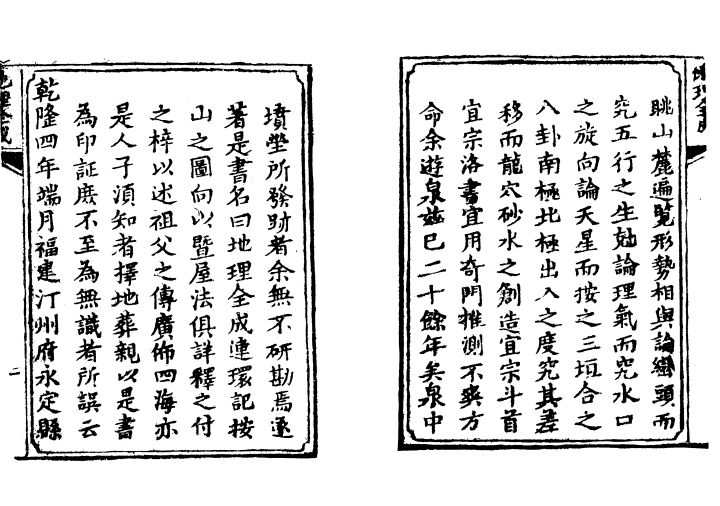 眺山麓遍覽形勢相與論巒頭而
究五行之生尅論理氣而究水口
之旋向論天星而按之三垣合之
八卦南極北極出入之度究其差
移而龍穴砂水之創造宜宗斗首
宜宗洛書宜用奇門推測不爽方
命余遊泉茲已二十餘年矣泉中
墳塋所發跡者余無不研勘焉遂
著是書名曰地理全成連環記按
山之圖向以暨屋法俱詳釋之付
之梓以述祖父之傳廣佈四海亦
是人子須知者擇地葬親以是書
為印証庶不至為無識者所誤云
乾隆四年端月福建汀州府永定縣
二